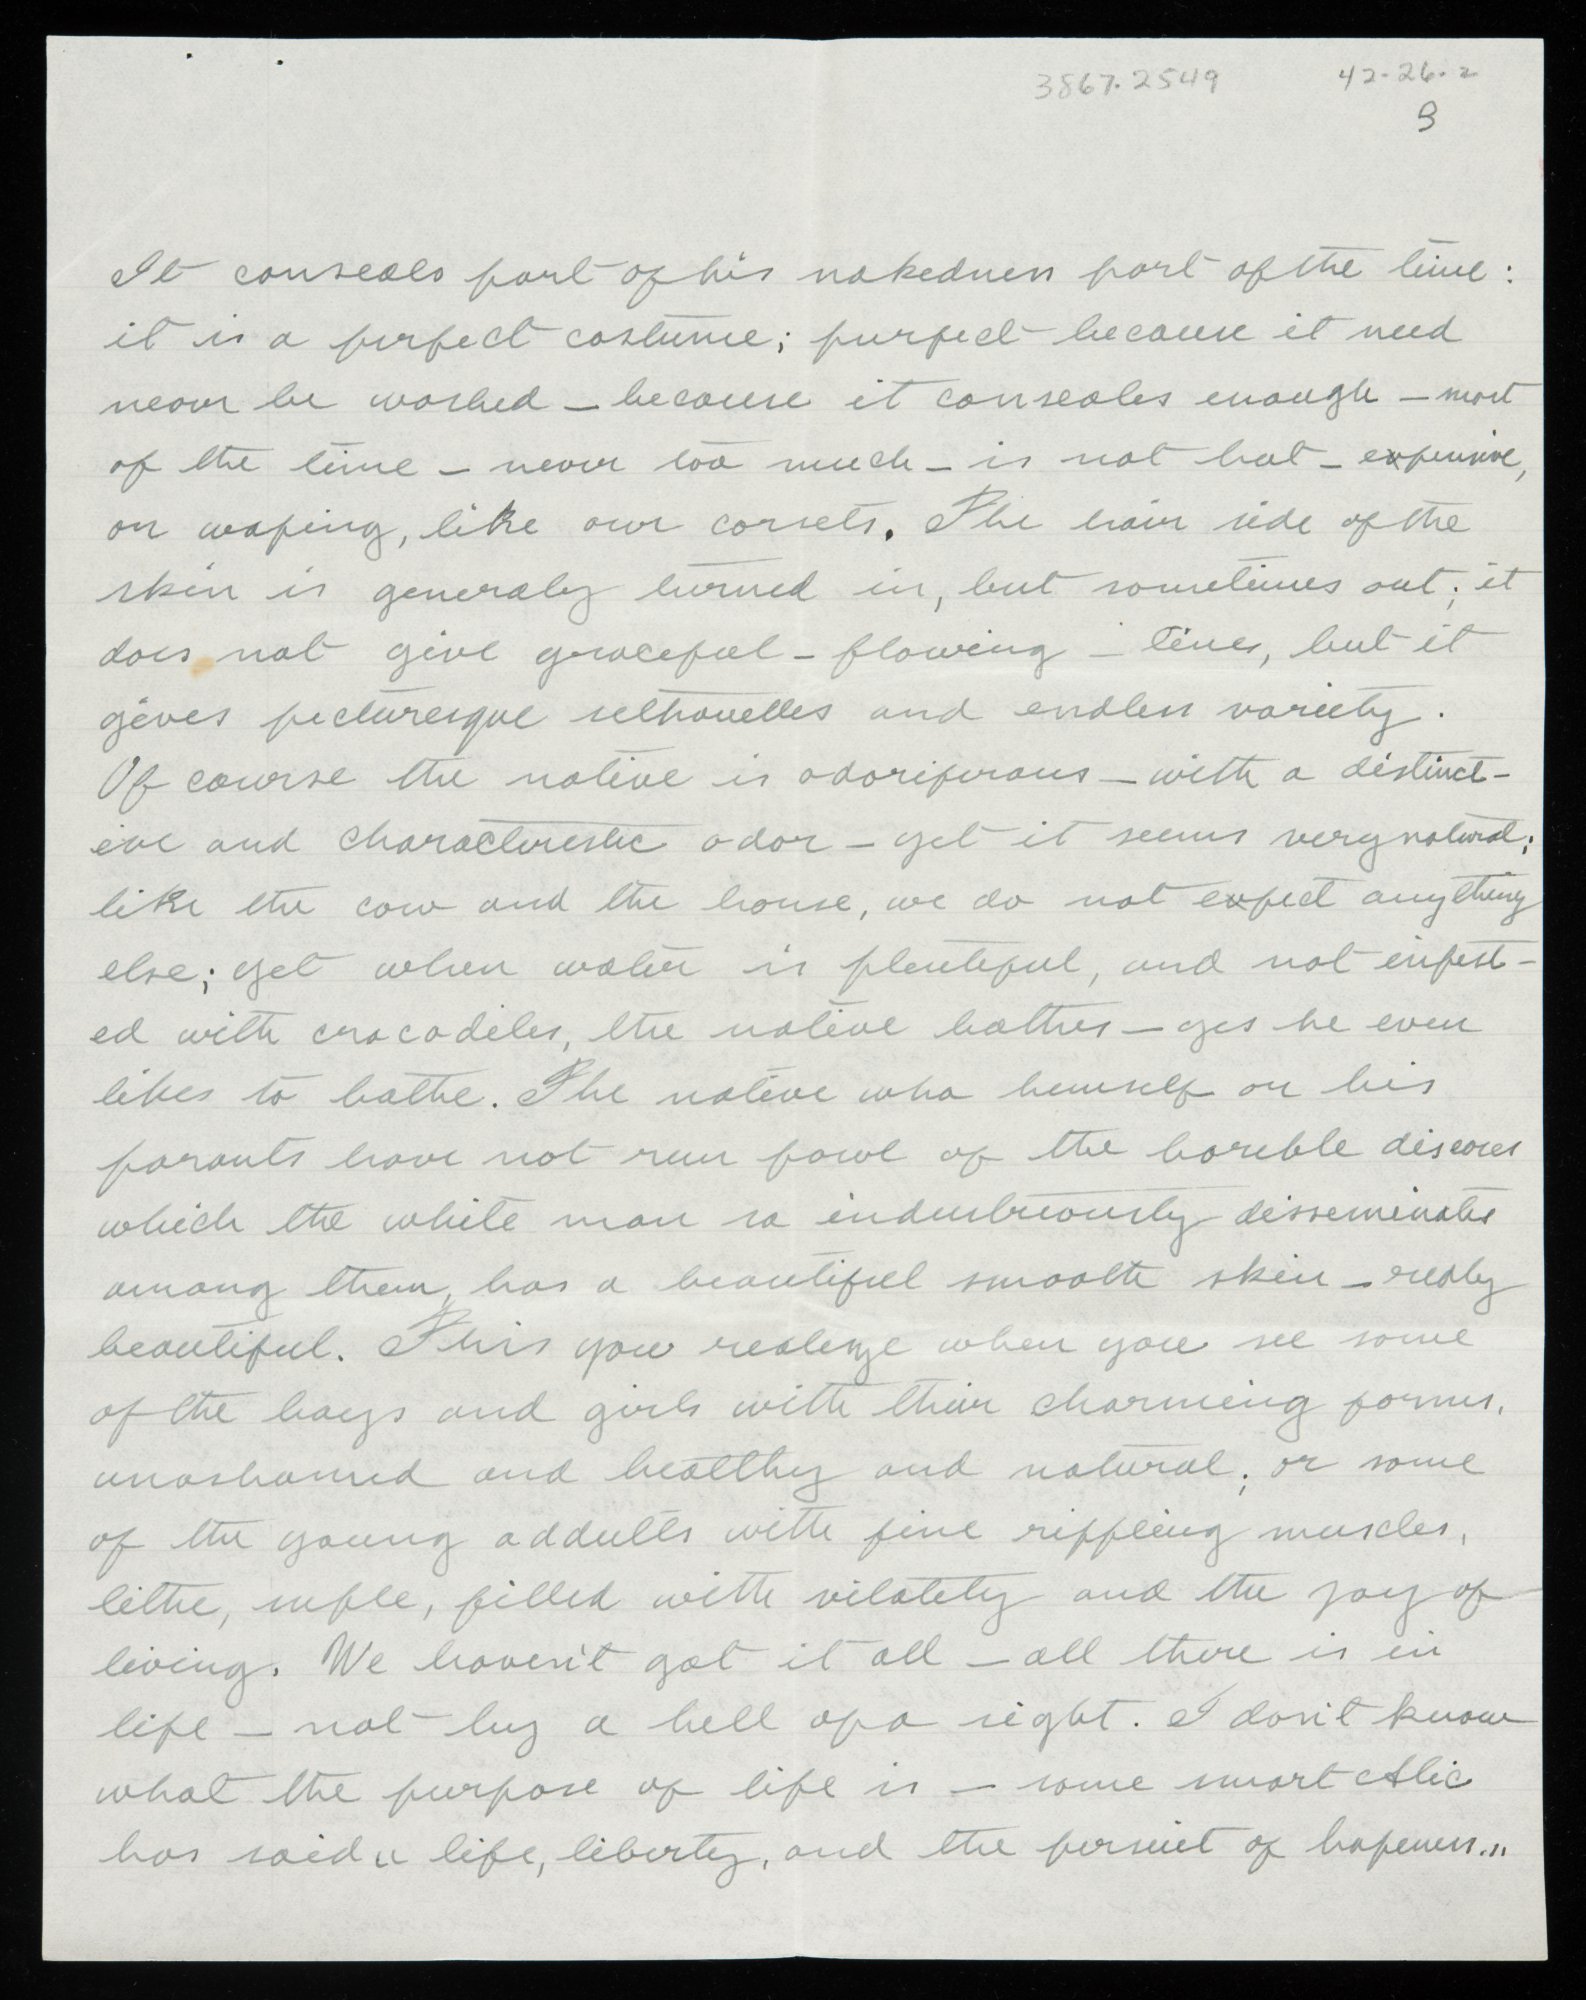 3867.2549 42-26.2
3
It conseals part of his nakedness part of the time:
it is a perfect costume; purfect because it need
never be washed — because it conseales enough — most
of the time — never too much — is not hot — expensive,
or waping, like our corsets. The hair side of the
skin is generaly turned in, but sometimes out; it
does not give graceful — flowing — lines, but it
gives picturesque silhouettes and endless variety.
Of course the native is odoriferous — with a distinct-
ive and characteristic odor — yet it seems very natural;
like the cow and the horse, we do not expect anything
else; yet when water is plentiful, and not infest-
ed with crocodiles, the native bathes — yes he even
likes to bathe. The native who himself or his
parants have not run fowl of the horible diseases
which the white man so industriously disseminates
among them, has a beautiful smooth skin — realy
beautiful. This you realize when you see some
of the boys and girls with their charming forms,
unashamed and healthy and natural; or some
of the young addults with fine rippling muscles,
lithe, suple, filled with vilatety and the joy of
living. We haven't got it all — all there is in
life — not by a hell of a sight. I don't know
what the purpose of life is — some smart Alic
has said " life, liberty, and the persuit of hapeness.."